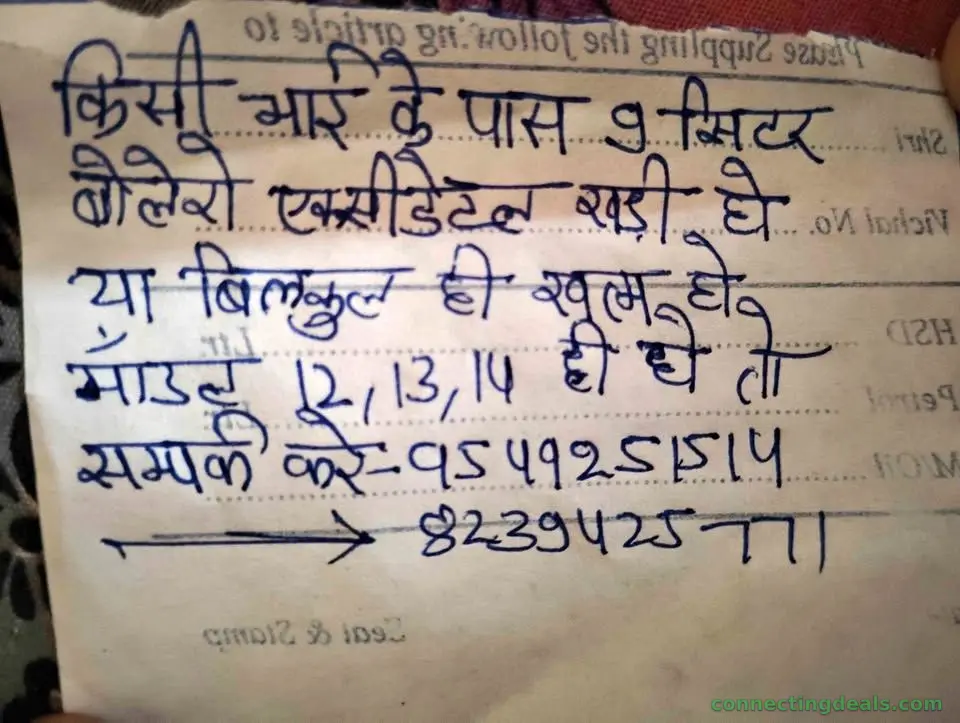 Please Suppling the following article to
किसी भाई के पास 9 सिटर
Shri
बोलेरो एक्सीडेटल खड़ी हो
Vichal No.
या बिलकुल ही खत्म हो
HSD
Ltr.
मॉडल 12,13,14 ही हो तो
Petrol
सम्पर्क करे-9549251514
M/Oil
→ 8239425771
Seal & Stamp
connectingdeals.com